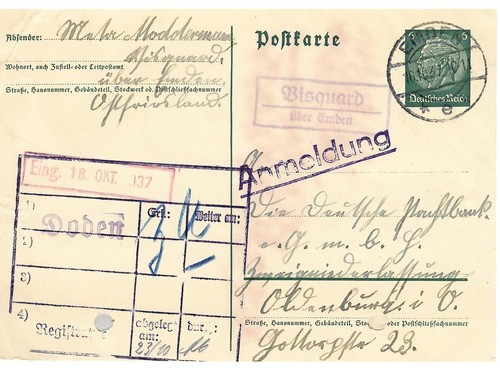 Absender: Meta Modderman
Visquard
Wohnort, auch Zustell- oder Leitpostamt
über Emden.
Straße, Hausnummer, Gebäudeteil, Stockwerk od. Postschließfachnummer
Ostfriesland
Postkarte
EMDEN
6
6
Deutsches Reich
Visquard
über Emden
Anmeldung
Eing. 18. OKT. 1937
1)
Doden
Erl.:
Weiter am:
2)
3)
4)
Registratur
abgelegt
am:
durch:
23/10
Die Deutsche Pachtbank
e. G. m. b. H.
Zweigniederlassung
Oldenburg i. O.
Straße, Hausnummer, Gebäudeteil, Stockwerk oder Postschließfachnummer
Gottorpstr 23.